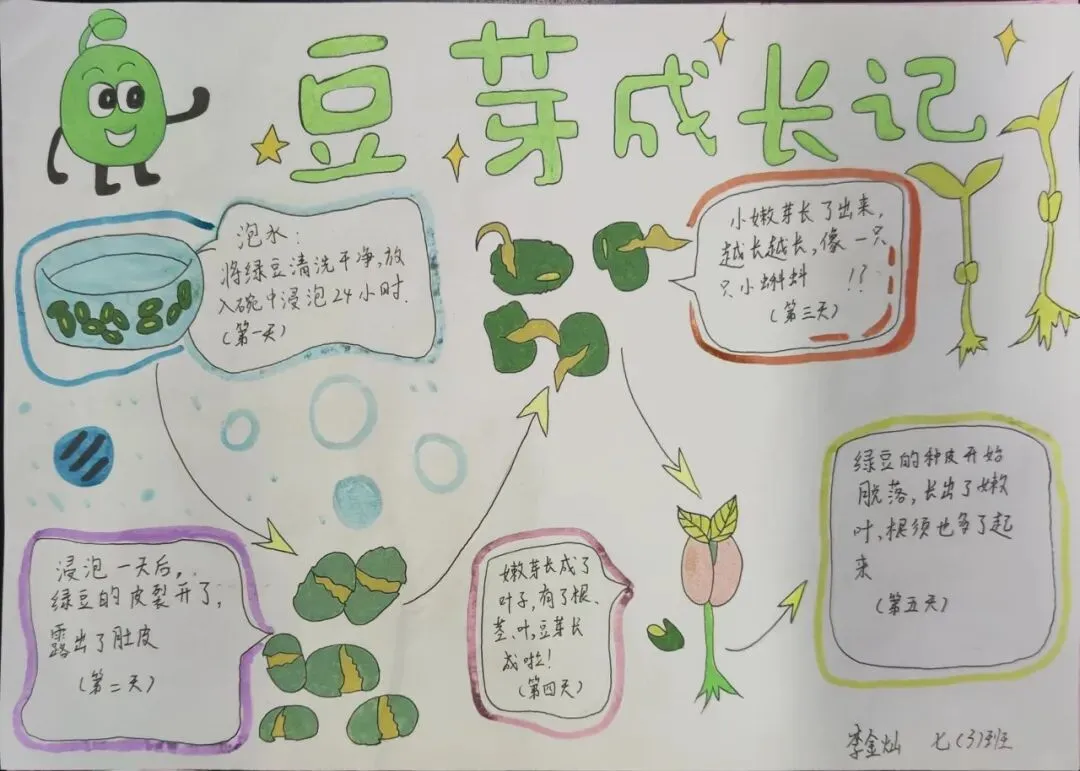 豆芽成长记
泡水:
将绿豆清洗干净,放
入碗中浸泡24小时.
(第一天)
浸泡一天后,
绿豆的皮裂开了,
露出了肚皮
(第二天)
小嫩芽长了出来,
越长越长,像一只
只小蝌蚪 !?
(第三天)
嫩芽长成了
叶子,有了根、
茎、叶,豆芽长
成啦!
(第四天)
绿豆的种皮开始
脱落,长出了嫩
叶,根须也多了起
来
(第五天)
李金灿 七(3)班